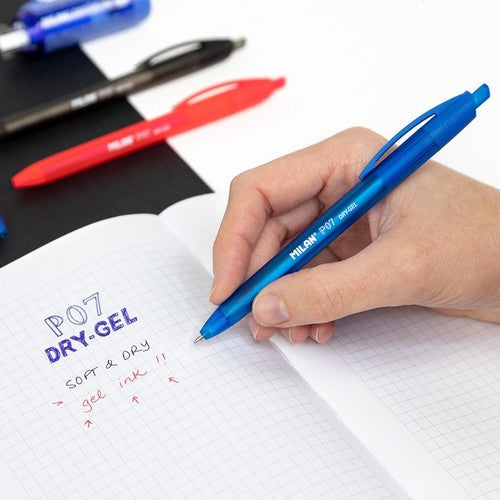 MILAN
MILAN P07
MILAN® P07 DRY-GEL
P07
DRY-GEL
SOFT & DRY
> gel ink !!